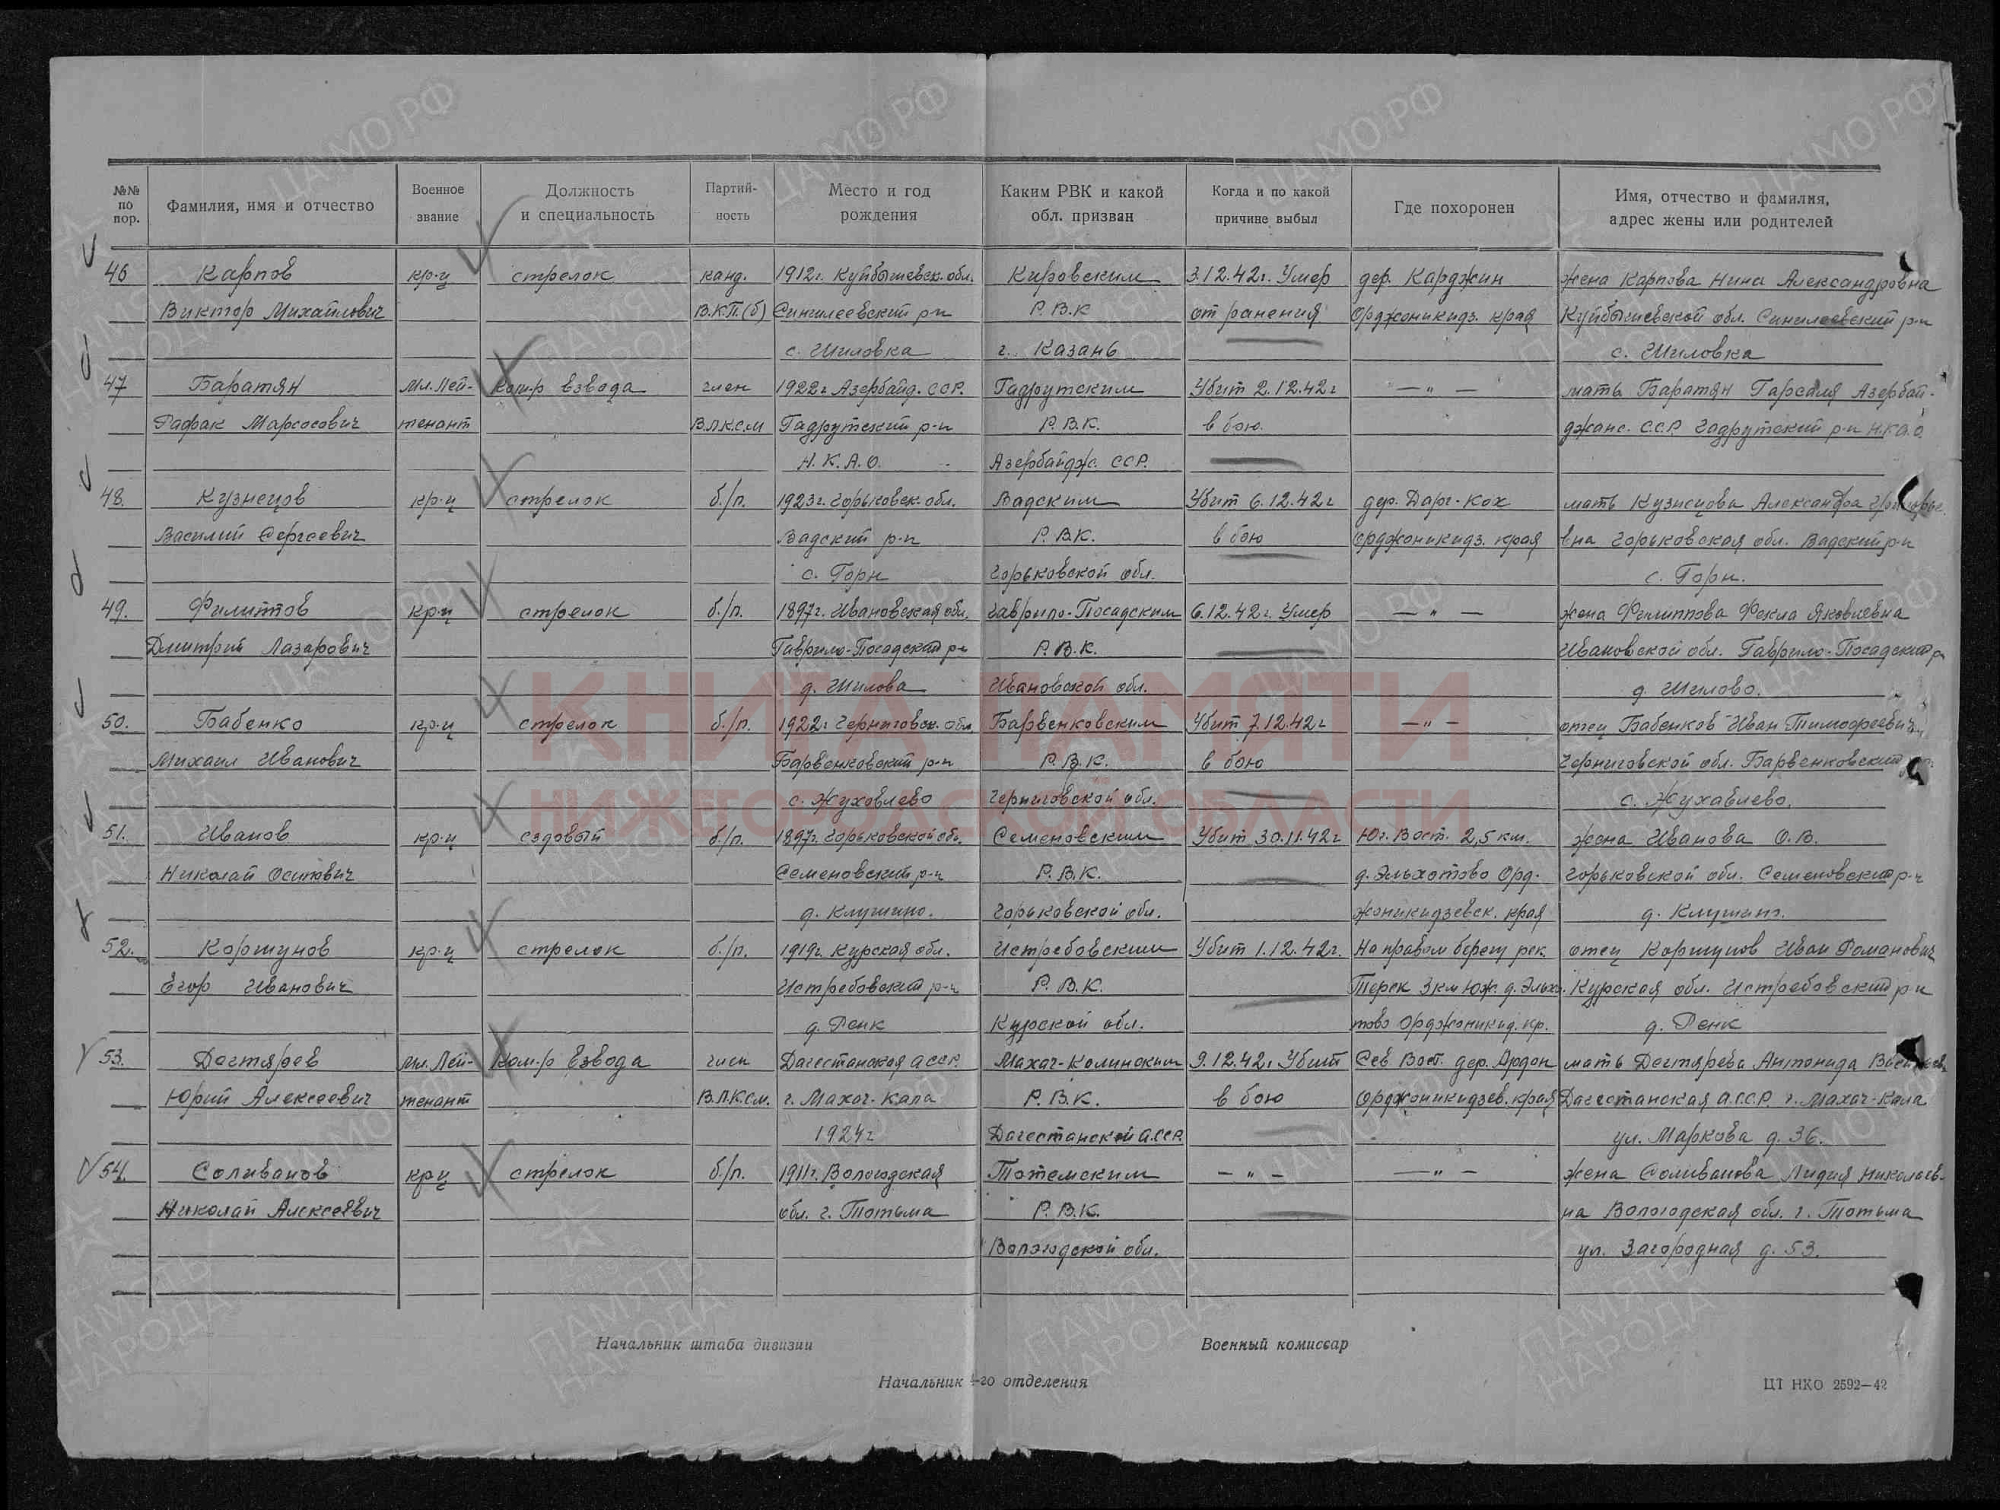 №№ по пор. Фамилия, имя и отчество Военное звание Должность и специальность Партий- ность Место и год рождения Каким РВК и какой обл. призван Когда и по какой причине выбыл Где похоронен Имя, отчество и фамилия, адрес жены или родителей
46 Карпов кр-ц стрелок канд. 1912г. Куйбышевск. обл. Кировским 3.12.42г. Умер дер. Карджин жена Карпова Нина Александровна
Виктор Михайлович В.К.П.(б) Сингилеевский р-н Р.В.К от ранения Орджоникидз. края Куйбышевской обл. Сингилеевский р-н
с. Шиловка г. Казань с. Шиловка
47 Баратян Мл. Лей- ком-р взвода член 1922г Азербайд. ССР. Гадрутским Убит 2.12.42г — " — мать Баратян Азербай-
Марсосович тенант В.Л.К.С.М Гадрутский р-н Р.В.К. в бою. джанс. С.С.Р. Гадрутский р-н Н.К.А.О.
Н.К.А.О. Азербайдж. ССР.
48. Кузнецов кр-ц стрелок б/п. 1923г. Горьковск. обл. Вадским Убит 6.12.42г дер. Дарг-Кох мать Кузнецова Александра
Василий Сергеевич Вадский р-н Р.В.К. в бою Орджоникидз. края вна Горьковская обл. Вадский р-н
с. Горн Горьковской обл. с. Горн.
49. Филиппов кр-ц стрелок б/п. 1897г. Ивановская обл. Гаврило-Посадским 6.12.42г. Умер — " — жена Филиппова Фекла Яковлевна
Дмитрий Лазарович Гаврило-Посадский р-н Р.В.К. Ивановской обл. Гаврило-Посадский р
д. Шилова Ивановской обл. д. Шилово.
50. Бабенко кр-ц стрелок б/п. 1922г Черниговск. обл. Барвенковским Убит 7.12.42г — " — отец Бабенков Иван Тимофеевич
Михаил Иванович Барвенковский р-н Р.В.К. в бою Черниговской обл. Барвенковский
с. Жуховлево Черниговской обл. с. Жухавлево.
51. Иванов кр-ц ездовый б/п. 1897г. Горьковской обл. Семеновским Убит 30.11.42г Юг. Вост. 2,5 км. жена Иванова О.В.
Николай Осипович Семеновский р-н Р.В.К. д. Эльхотово Орд- Горьковской обл. Семеновский р-н
д. Клушино. Горьковской обл. жоникидзевск. края д. Клушино.
52. Коршунов кр-ц стрелок б/п. 1919г. Курская обл. Истребовским Убит 1.12.42г. На правом берегу рек. отец Коршунов Иван Романович
Егор Иванович Истребовский р-н Р.В.К. Терек 3 км Юж. д. Эльхо- Курская обл. Истребовский р-н
д. Репк Курской обл. тово Орджоникид. кр. д. Репк
53. Дегтярев Мл. Лей- ком-р взвода член Дагестанская АССР. Махач-Калинским 9.12.42г. Убит Сев Вост. дер. Ардон мать Дегтярева Антонида
Юрий Алексеевич тенант В.Л.К.С.М. г. Махач-Кала Р.В.К. в бою Орджоникидзев. края Дагестанская А.С.С.Р. г. Махач-Кала
1924г Дагестанской А.С.С.Р. ул. Маркова д. 36.
54. Соливанов кр-ц стрелок б/п. 1911г. Вологодская Тотемским — " — — " — жена Соливанова Лидия Николаев-
Николай Алексеевич обл. г. Тотьма Р.В.К. на Вологодская обл. г. Тотьма
Вологодской обл. ул. Загородная д. 53.
Начальник штаба дивизии Военный комиссар
Начальник 4-го отделения ЦТ НКО 2592—42
КНИГА ПАМЯТИ
НИЖЕГОРОДСКОЙ ОБЛАСТИ
ЦАМО.РФ
ПАМЯТЬ НАРОДА